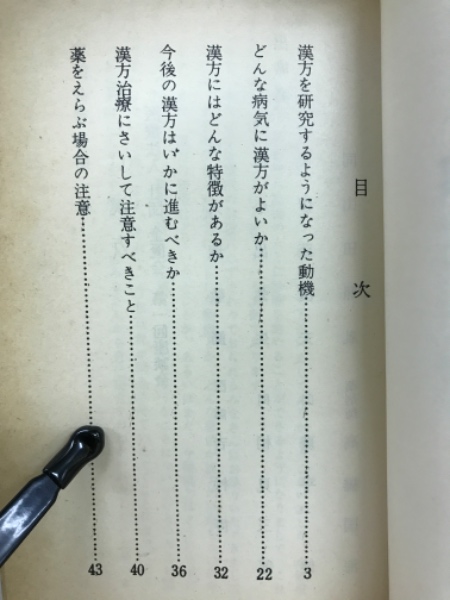 目次
漢方を研究するようになった動機……………………3
どんな病気に漢方がよいか……………………22
漢方にはどんな特徴があるか……………………32
今後の漢方はいかに進むべきか……………………36
漢方治療にさいして注意すべきこと……………………40
薬をえらぶ場合の注意……………………43